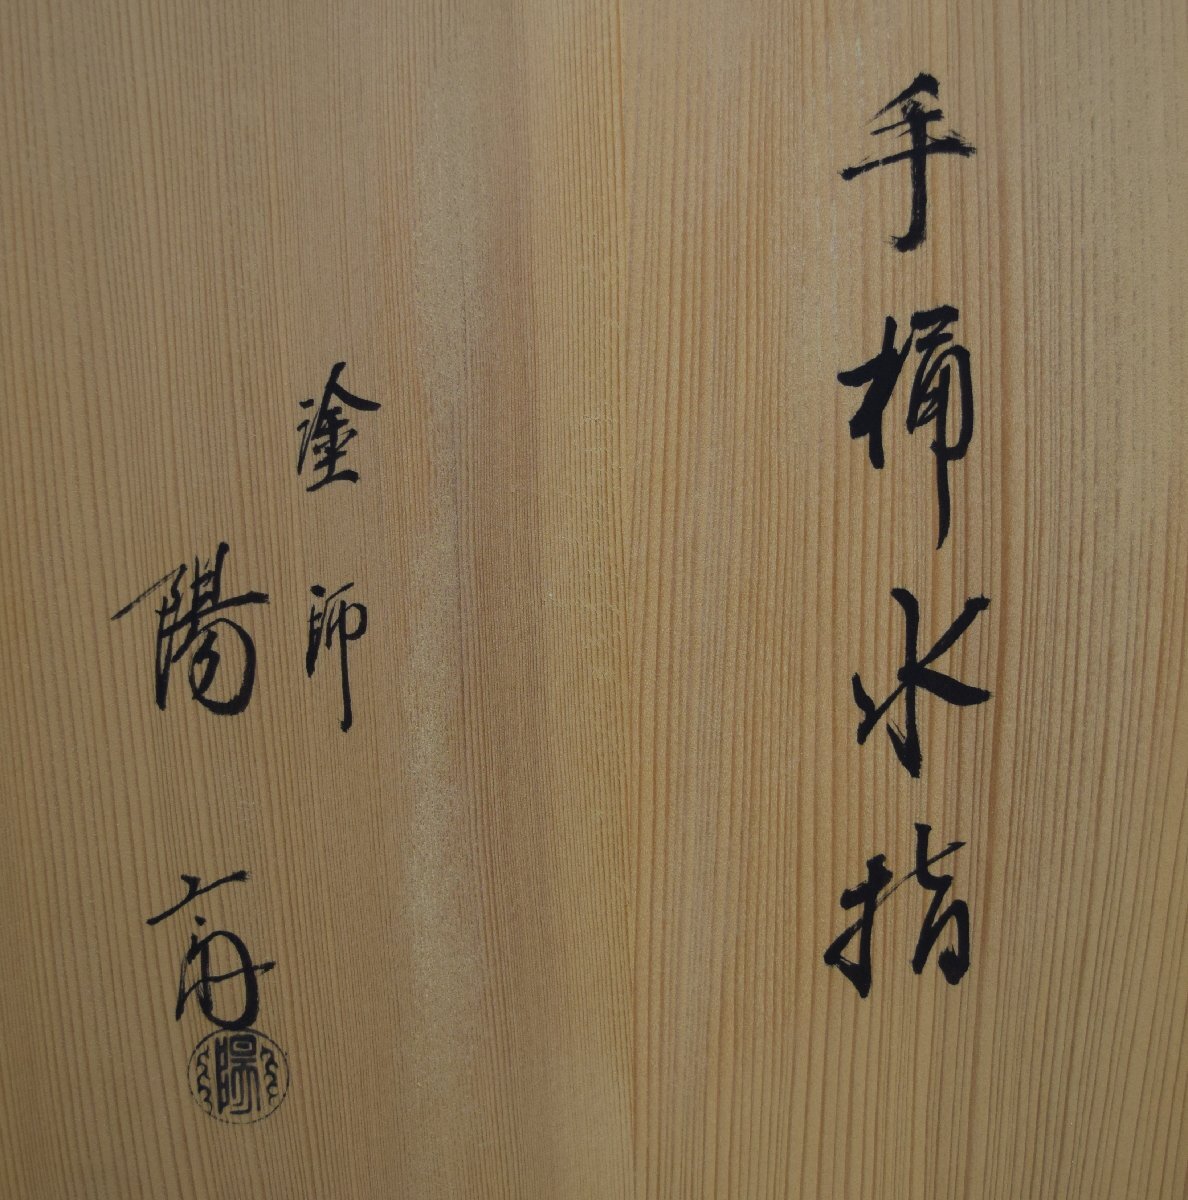 手桶水指
塗師
陽斎
陽